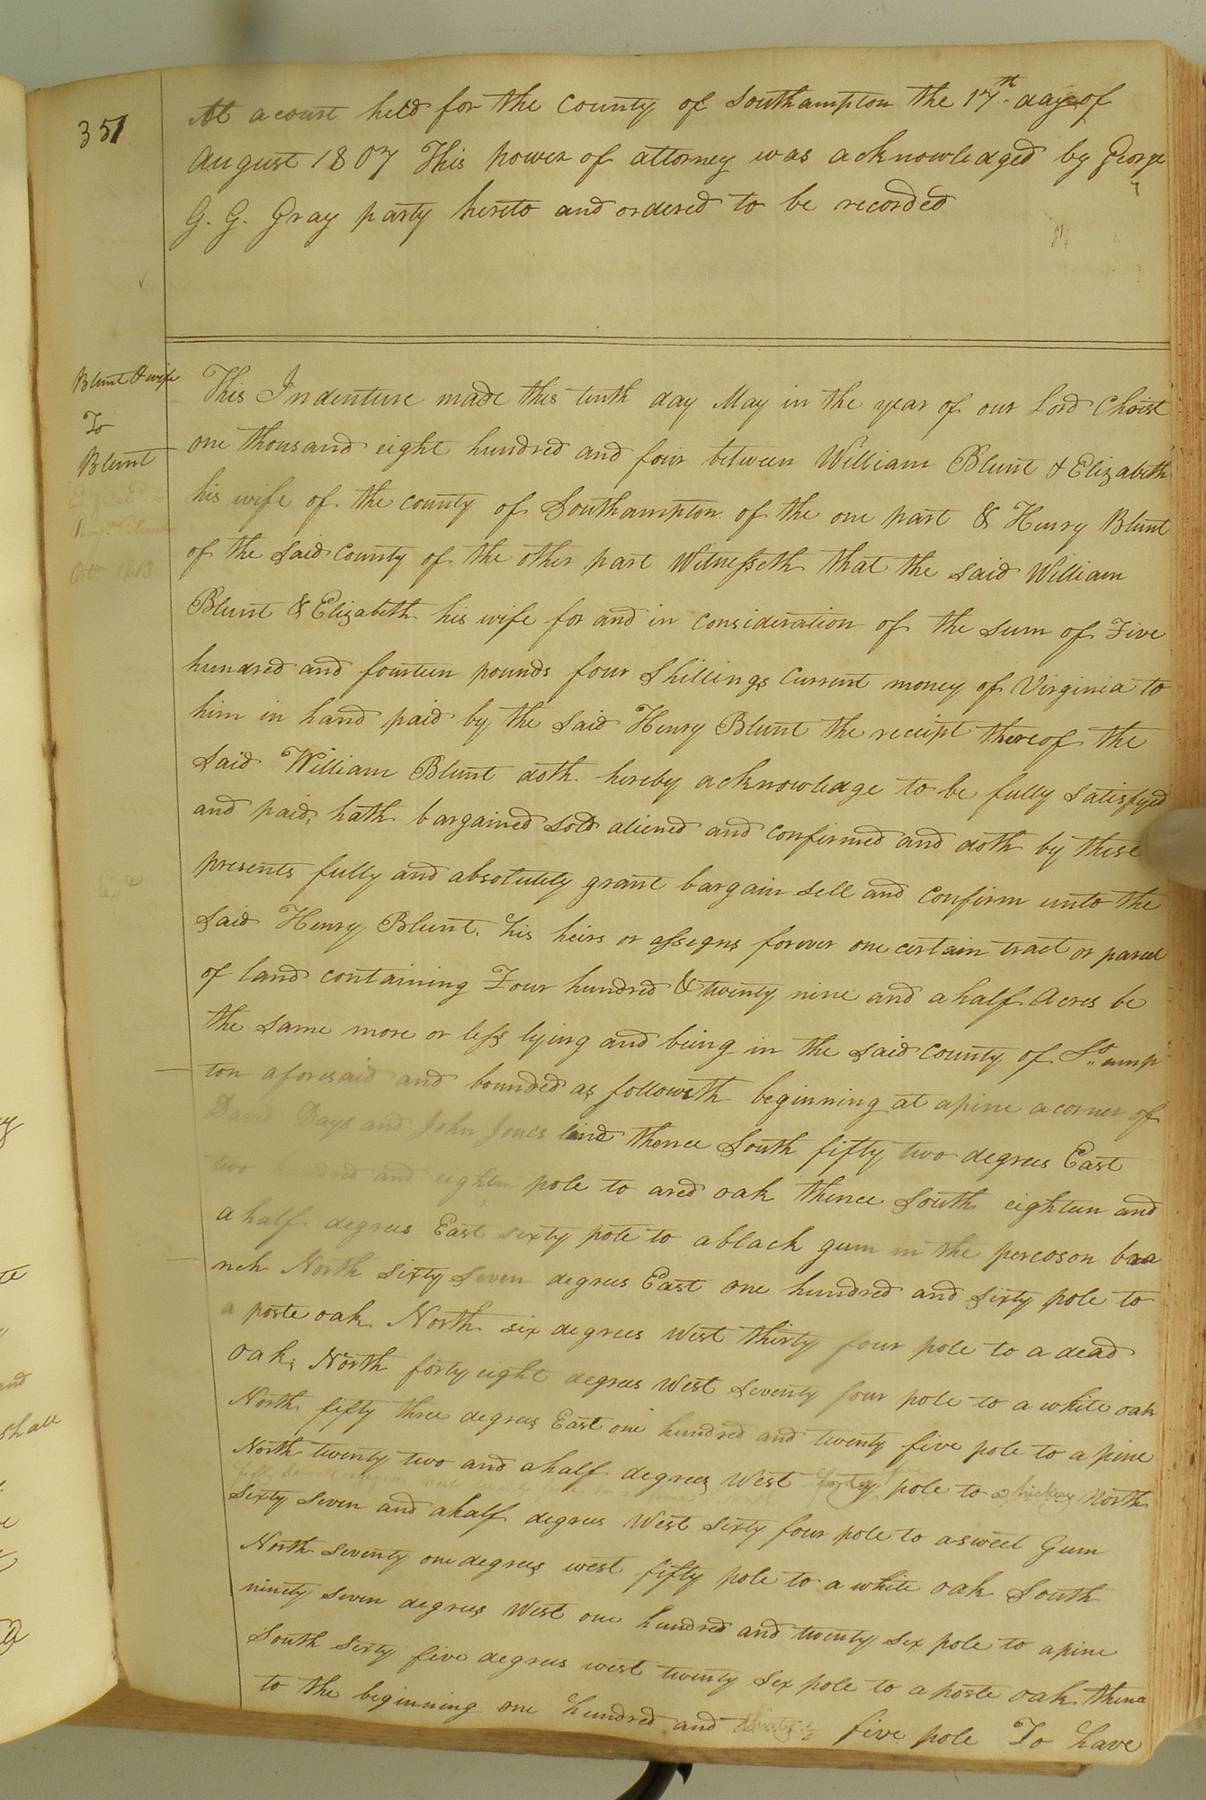 351
At a court held for the County of Southampton the 17th day of
August 1807 This power of attorney was acknowledged by George
G. G. Gray party hereto and ordered to be recorded
Blunt & wife
To
Blunt
1813
This Indenture made this tenth day May in the year of our Lord Christ
one thousand eight hundred and four between William Blunt & Elizabeth
his wife of the county of Southampton of the one part & Henry Blunt
of the said County of the other part Witnesseth that the said William
Blunt & Elizabeth his wife for and in consideration of the sum of Five
hundred and fourteen pounds four Shillings Current money of Virginia to
him in hand paid by the said Henry Blunt the receipt thereof the
said William Blunt doth hereby acknowledge to be fully satisfyed
and paid, hath bargained sold aliened and confirmed and doth by these
presents fully and absolutely grant bargain sell and confirm unto the
said Henry Blunt. his heirs or assigns forever one certain tract or parcel
of land containing Four hundred & twenty nine and a half Acres be
the same more or less lying and being in the said County of So.amp
ton aforesaid and bounded as followeth beginning at a pine a corner of
Days and John Jones land thence South fifty two degrees East
two hundred and eighteen pole to a red oak thence South eighteen and
a half degrees East sixty pole to a black gum in the percoson bra
nch North sixty seven degrees East one hundred and sixty pole to
a poste oak North six degrees West thirty four pole to a dead
Oak, North forty eight degrees West seventy four pole to a white oak
North fifty three degrees East one hundred and twenty five pole to a pine
North twenty two and a half degrees West pole to a hickory North
Sixty seven and a half degrees West sixty four pole to a sweet Gum
North seventy one degrees west fifty pole to a white oak South
ninety seven degrees West one hundred and twenty six pole to a pine
South sixty five degrees west twenty six pole to a poste oak thence
to the beginning one hundred and five pole To have